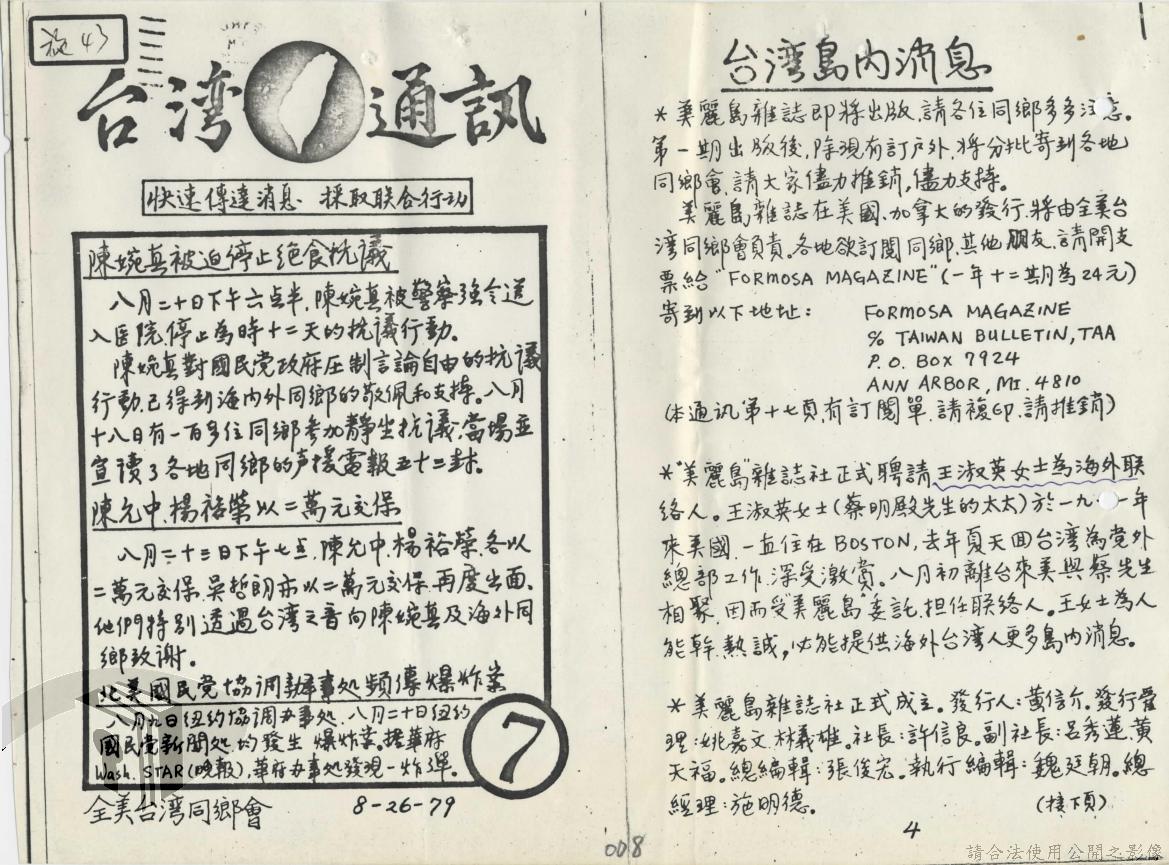 台湾通訊
快速傳達消息 採取联合行动
陳婉真被迫停止绝食抗議
八月二十日下午六点半,陳婉真被警察強令送
入医院,停止為時十二天的抗議行動.
陳婉真對國民党政府压制言論自由的抗議
行動,已得到海内外同鄉的敬佩和支持。八月
十八日有一百多位同鄉参加靜坐抗議,當場並
宣读了各地同鄉的声援電報五十二封。
陳允中,楊裕榮以二萬元交保
八月二十三日下午七点,陳允中,楊裕榮,各以
二萬元交保,吳哲朗亦以二萬元交保,再度出面、
他們特别透過台湾之音向陳婉真及海外同
鄉致謝。
北美國民党協調辦事処頻傳爆炸案
八月九日纽约協调办事処,八月二十日纽约
國民党新聞処,均發生 爆炸案,據華府
Wash. STAR(晚報),華府办事処發現一炸彈.
7
全美台湾同鄉會 8-26-79
台湾島内消息
*美麗島雜誌即將出版,請各位同鄉多多注意。
第一期出版後,除現有訂户外,將分批寄到各地
同鄉會,請大家儘力推銷,儘力支持。
美麗島雜誌在美國、加拿大的發行,將由全美台
湾同鄉會負责。各地欲訂閱同鄉,其他朋友,請開支
票給"FORMOSA MAGAZINE"(一年十二期為24元)
寄到以下地址: FORMOSA MAGAZINE
% TAIWAN BULLETIN, TAA
P.O. BOX 7924
ANN ARBOR, MI. 4810
(本通訊第十七頁,有訂閱單,請複印,請推銷)
*"美麗島"雜誌社正式聘請王淑英女士為海外联
络人。王淑英女士(蔡明殿先生的太太)於一九 一年
來美國,一直住在BOSTON,去年夏天回台湾為党外
總部工作,深受激賞。八月初離台來美與蔡先生
相聚,因而受"美麗島"委託,担任联絡人。王女士為人
能幹,熱誠,必能提供海外台湾人更多島内消息。
*美麗島雜誌社正式成立。發行人:黄信介.發行管
理:姚嘉文.林義雄。社長:許信良。副社長:呂秀蓮,黄
天福。總編輯:張俊宏。執行編輯:魏廷朝。總
經理:施明德。 (接下頁)
4
008
請合法使用公開之影像